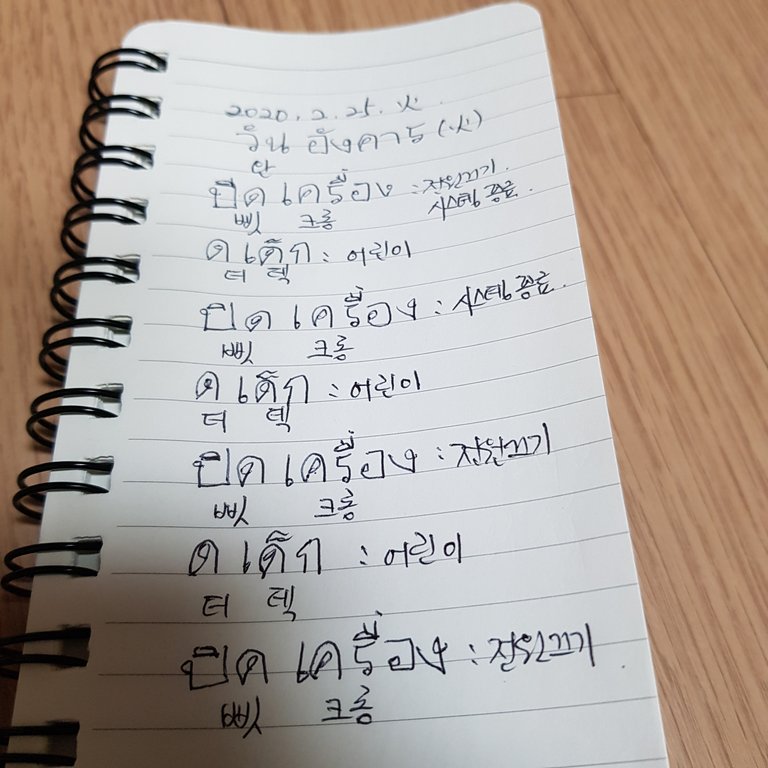 2020. 2. 25. 火.
วัน อังคาร (火)
완
ปิด เครื่อง : 전원끄기.
삣 크릉 시스템 종료.
ด เด็ก : 어린이
더 덱
ปิด เครื่อง : 시스템 종료.
삣 크릉
ด เด็ก : 어린이
더 덱
ปิด เครื่อง : 전원끄기
삣 크릉
ด เด็ก : 어린이
더 덱
ปิด เครื่อง : 전원끄기.
삣 크릉